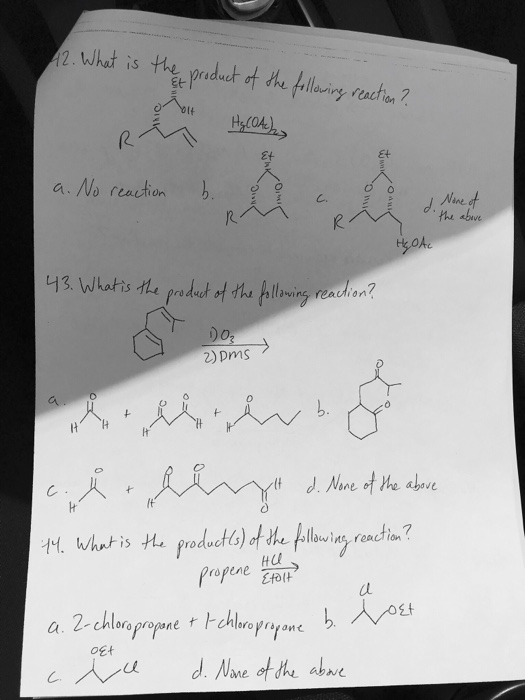 42. What is the product of the following reaction?
Et
O
OH
R
Hg(OAc)2
a. No reaction
b.
Et
O O
R
c.
Et
O O
R
HgOAc
d. None of
the above
43. What is the product of the following reaction?
1) O3
2) DMS
a.
O
H H
+
O O
H H
+
O
H
b.
O
O
c.
O
H
+
O O
H
H
O
d. None of the above
44. What is the product(s) of the following reaction?
propene
HCl
EtOH
a. 2-chloropropane + 1-chloropropane
b.
Cl
OEt
c.
OEt
Cl
d. None of the above